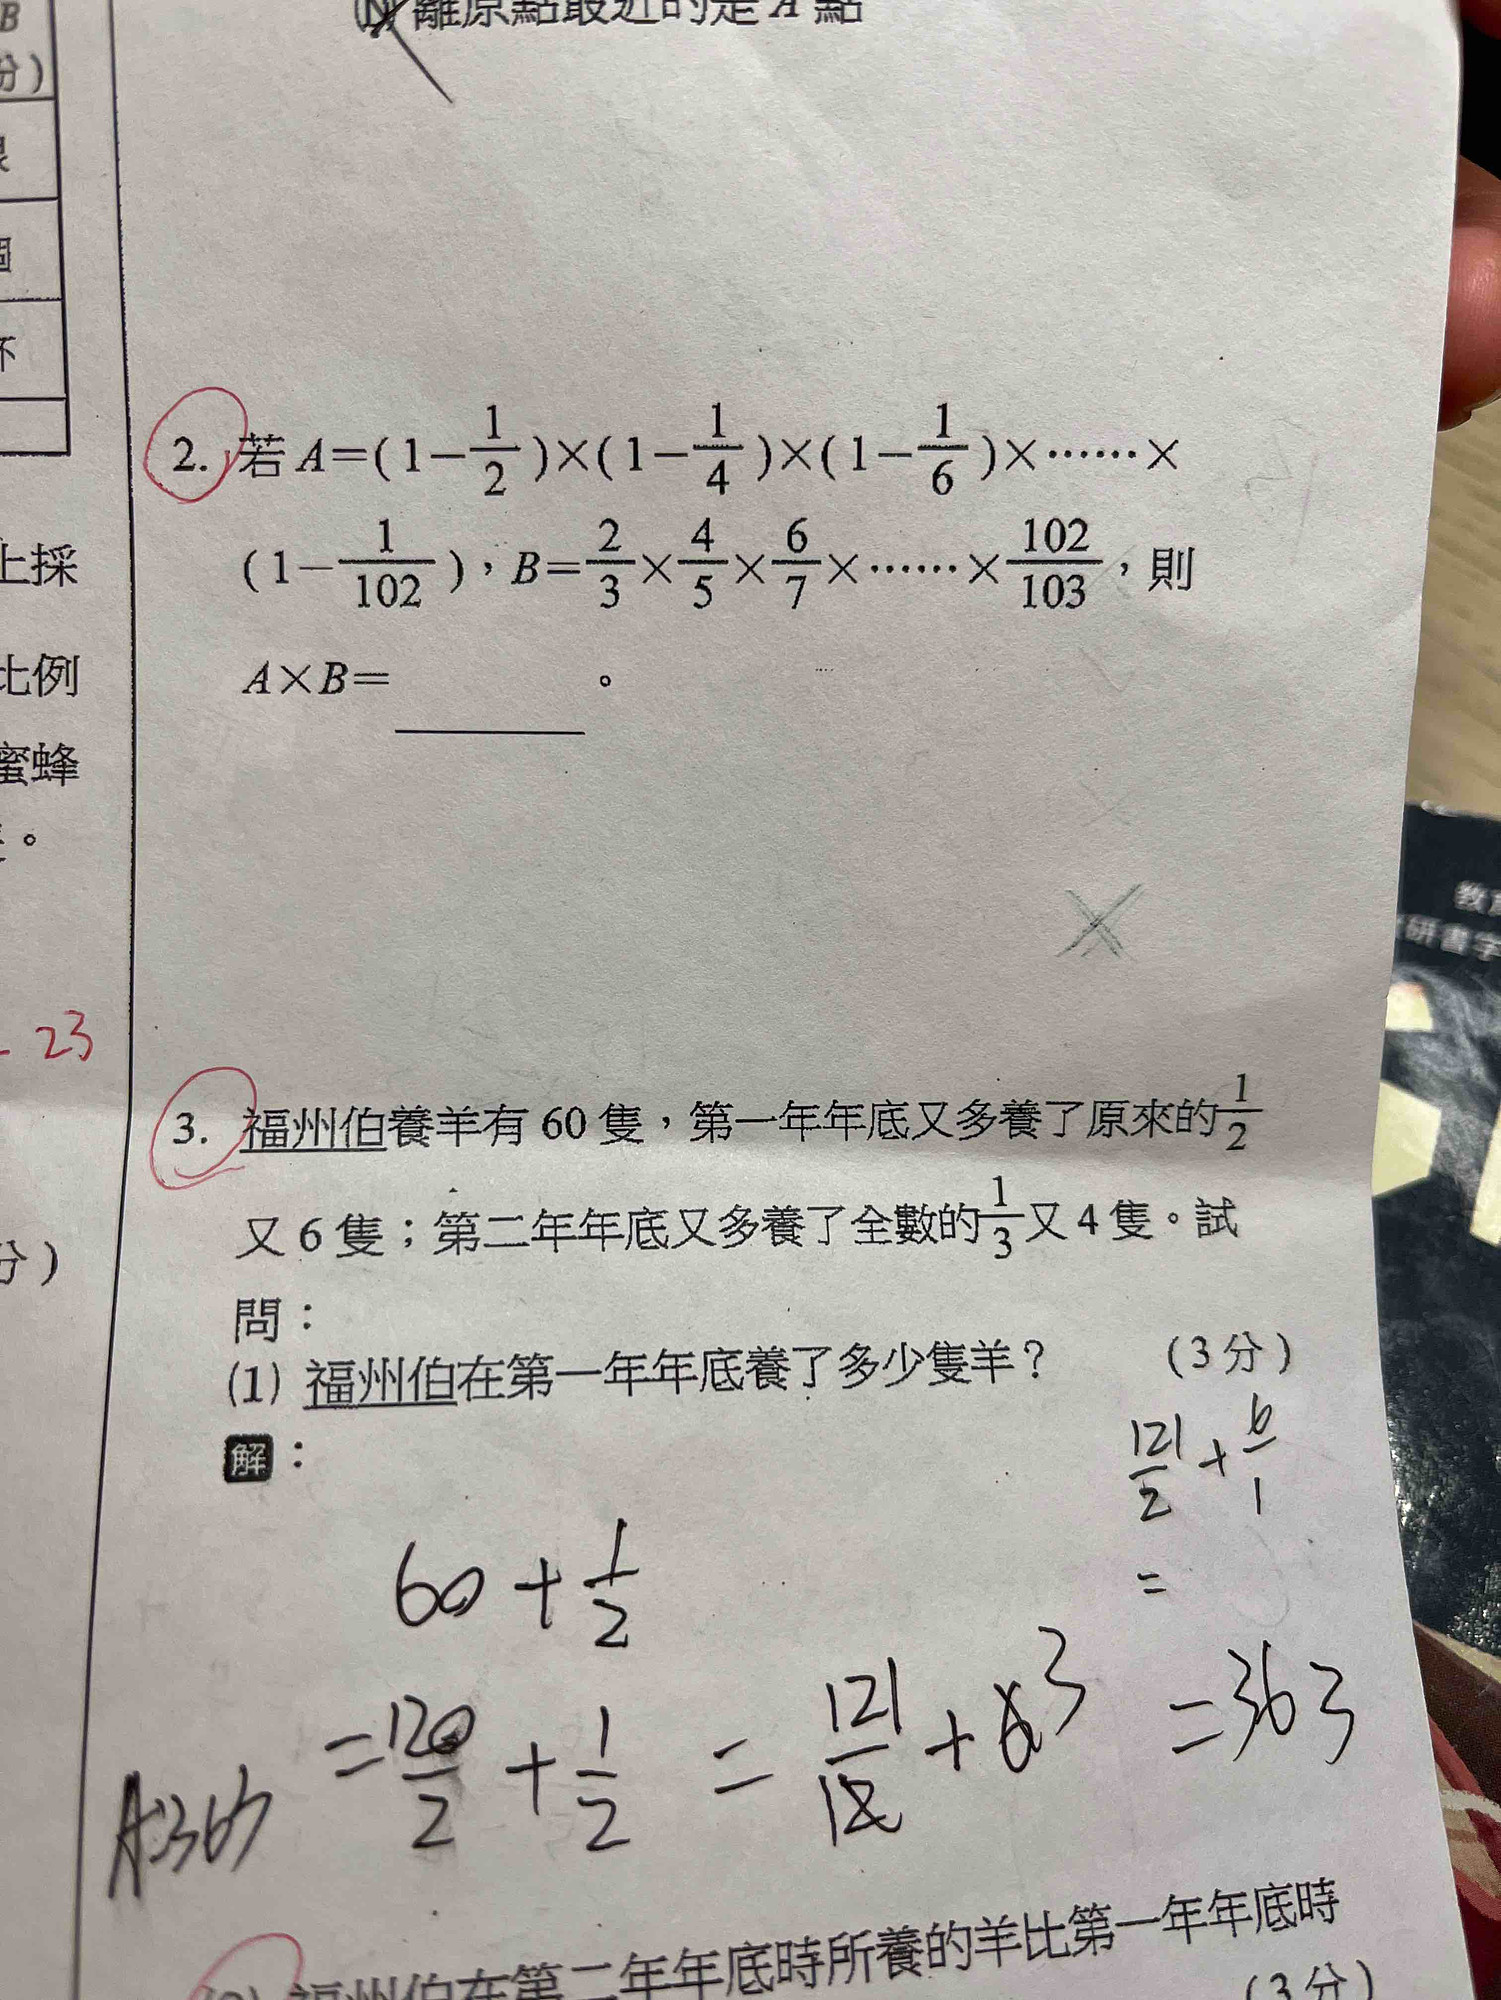 B
分)
(D) 離原點最近的是 A 點
個
杯
上採
比例
蜜蜂
。
23
分)
2. 若 A=(1-1/2)×(1-1/4)×(1-1/6)×……×
(1-1/102),B=2/3×4/5×6/7×……×102/103,則
A×B=______。
3. 福州伯養羊有 60 隻,第一年年底又多養了原來的1/2
又 6 隻;第二年年底又多養了全數的1/3又 4 隻。試
問:
(1) 福州伯在第一年年底養了多少隻羊? (3 分)
解:
121/2 + 6/1
=
60 + 1/2
= 120/2 + 1/2 = 121/12 + 6 3 = 363
A:363
福州伯在第二年年底時所養的羊比第一年年底時
(3 分)
教育
研書字